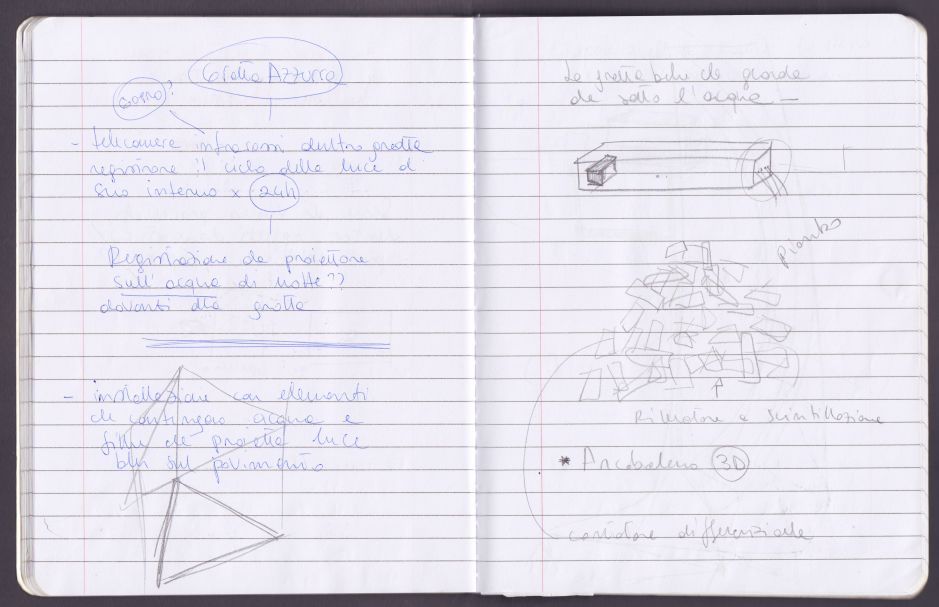 Grotta Azzurra
sogno?
- telecamere infrarossi dentro grotta
registrare il ciclo della luce al
suo interno x 24h
Registrazione da proiettore
sull'acqua di notte??
davanti alla grotta
- installazione con elementi
che contengano acqua e
filtri che proietta luce
blu sul pavimento
La grotta blu che guarda
da sotto l'acqua -
piombo
Rilevatore a scintillazione
* Arcobaleno 3D
contatore differenziale